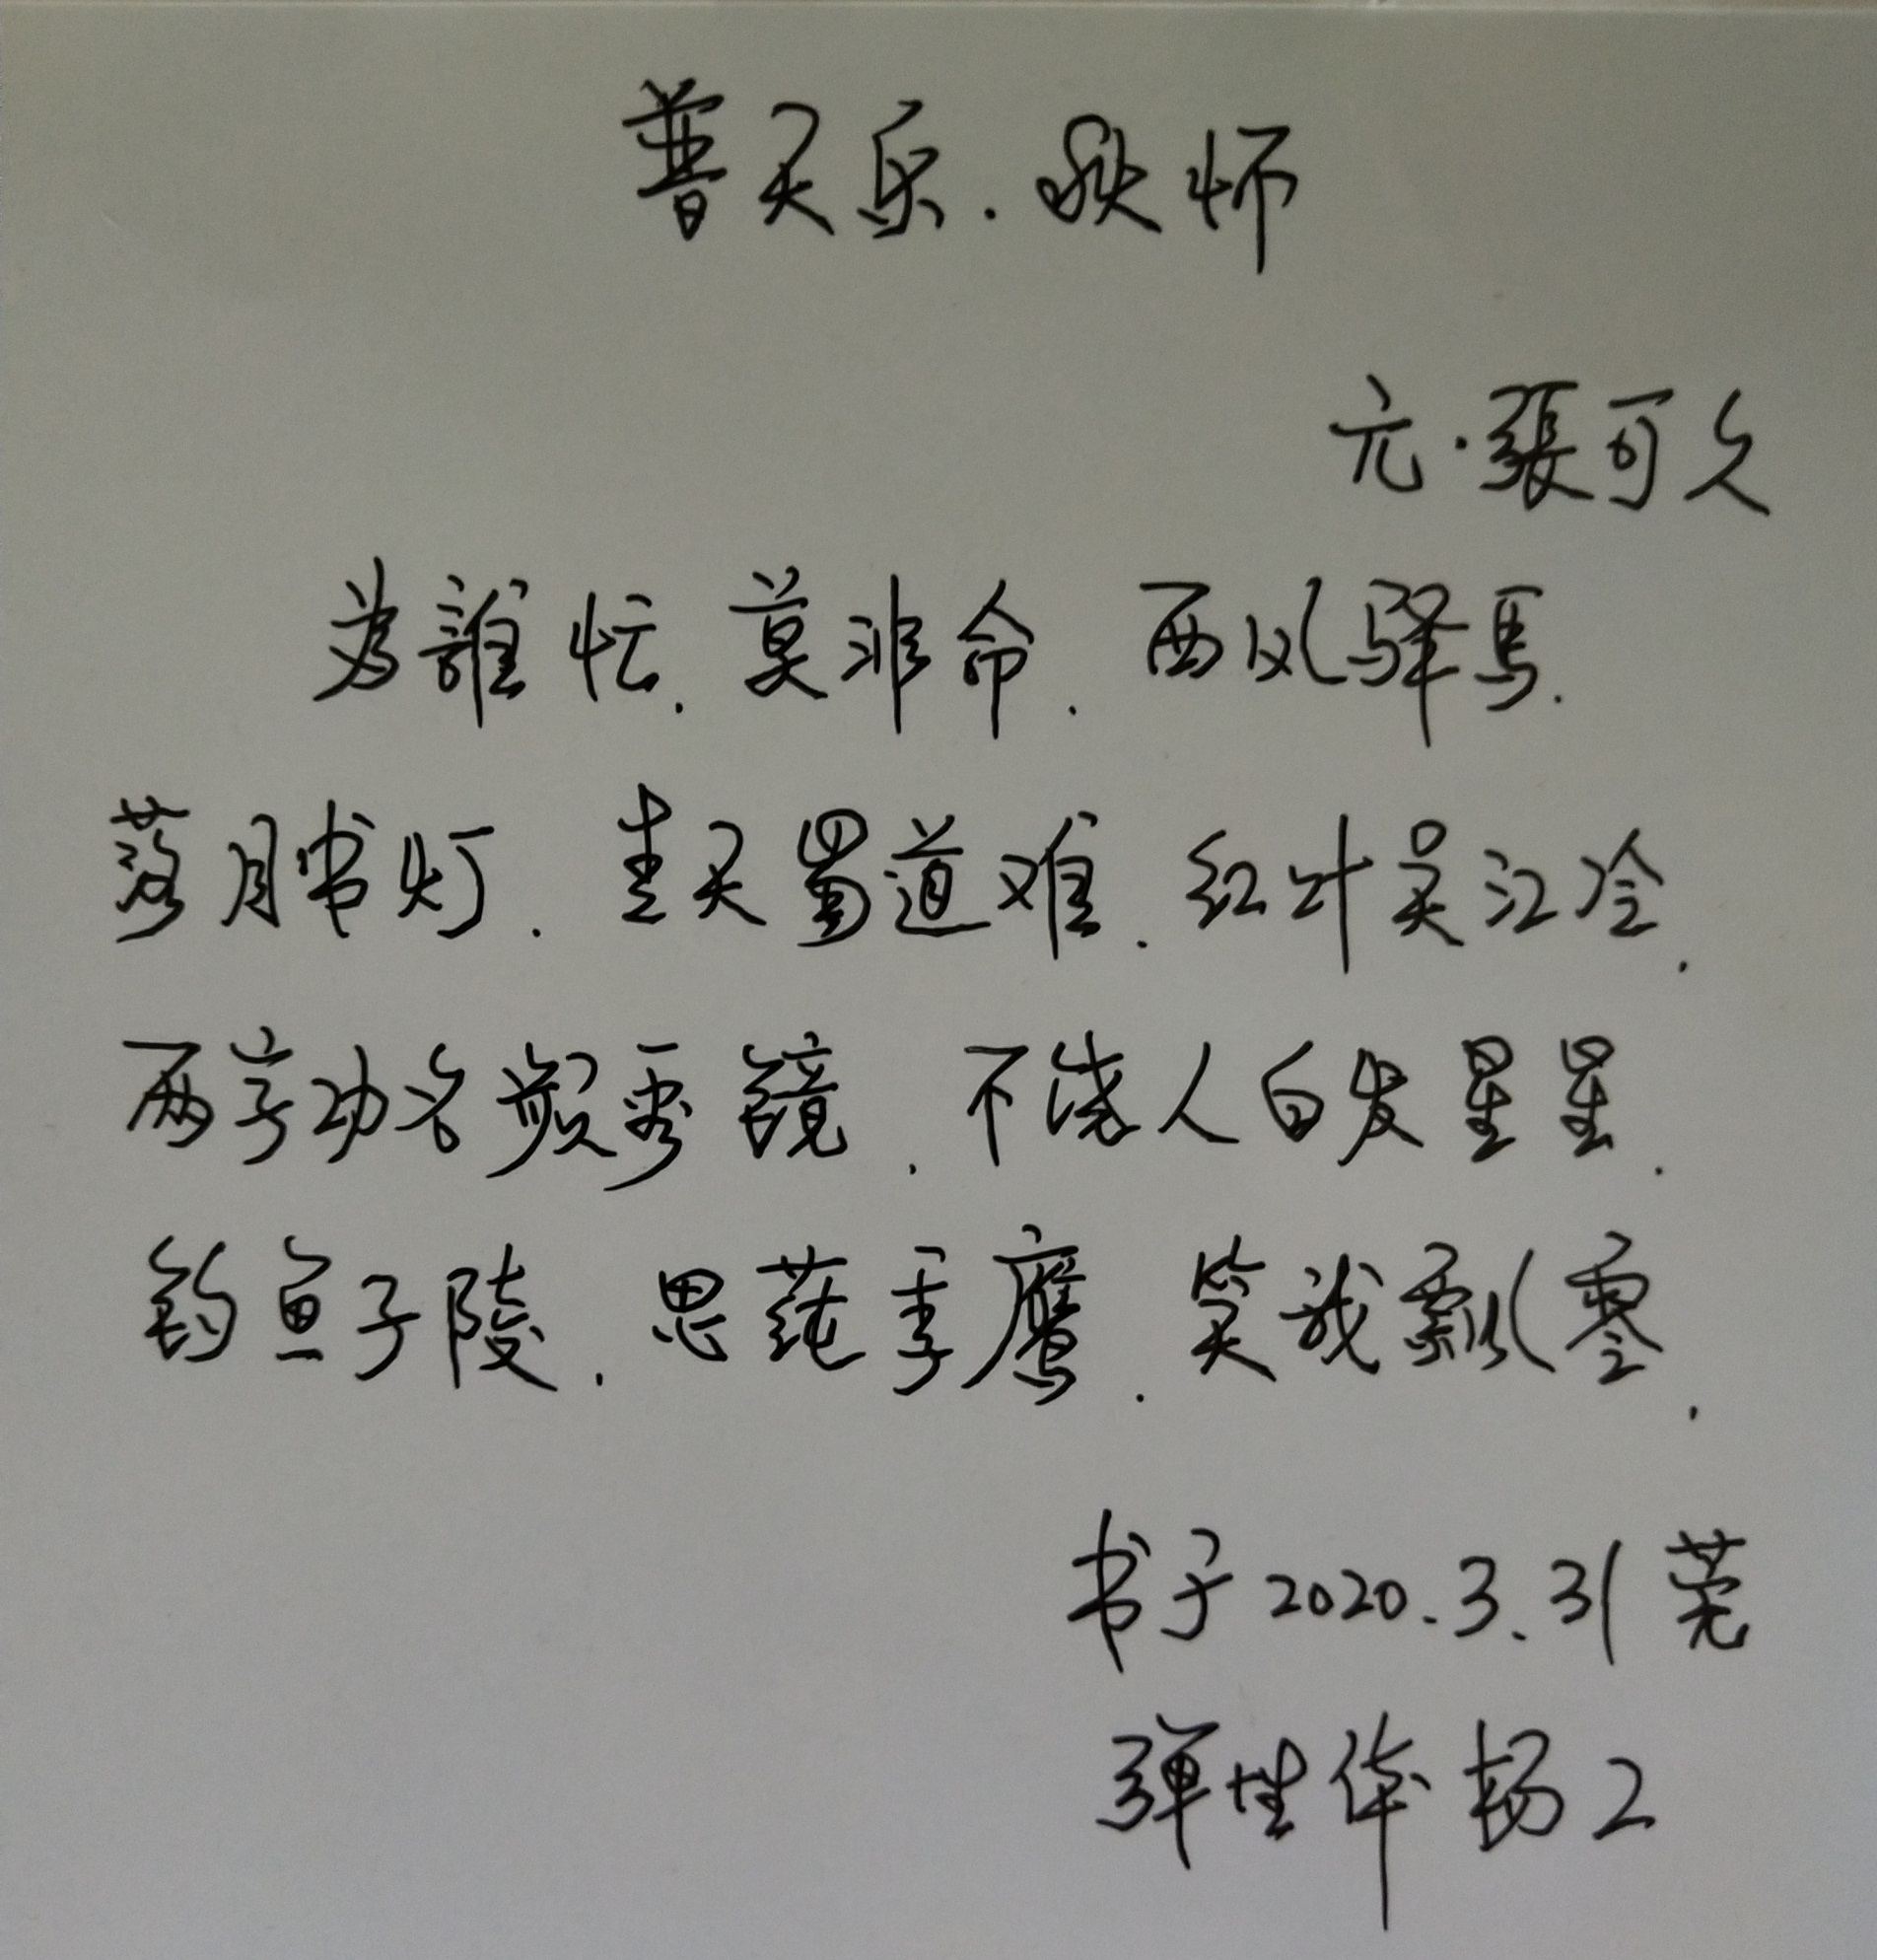 普天乐.秋怀
元·張可久
为誰忙.莫非命.西风驿馬.
落月书灯.青天蜀道难.红叶吴江冷.
两字功名频看镜.不饶人白发星星.
钓鱼子陵.思莼季鹰.笑我飘零.
书于2020.3.31莞
弹性体杨工